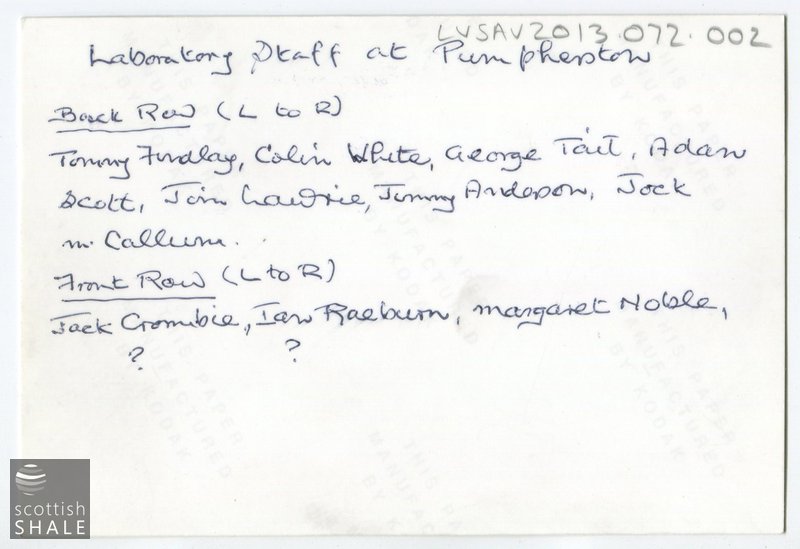 LVSAV2013.072.002
Laboratory Staff at Pumpherston
Back Row (L to R)
Tommy Findlay, Colin White, George Tait, Adam
Scott, Tom Lawrie, Jimmy Anderson, Jock
Mc Callum.
Front Row (L to R)
Jack Crombie, Ian Raeburn, Margaret Noble,
? ?
THIS PAPER
MANUFACTURED
BY KODAK
scottish
SHALE